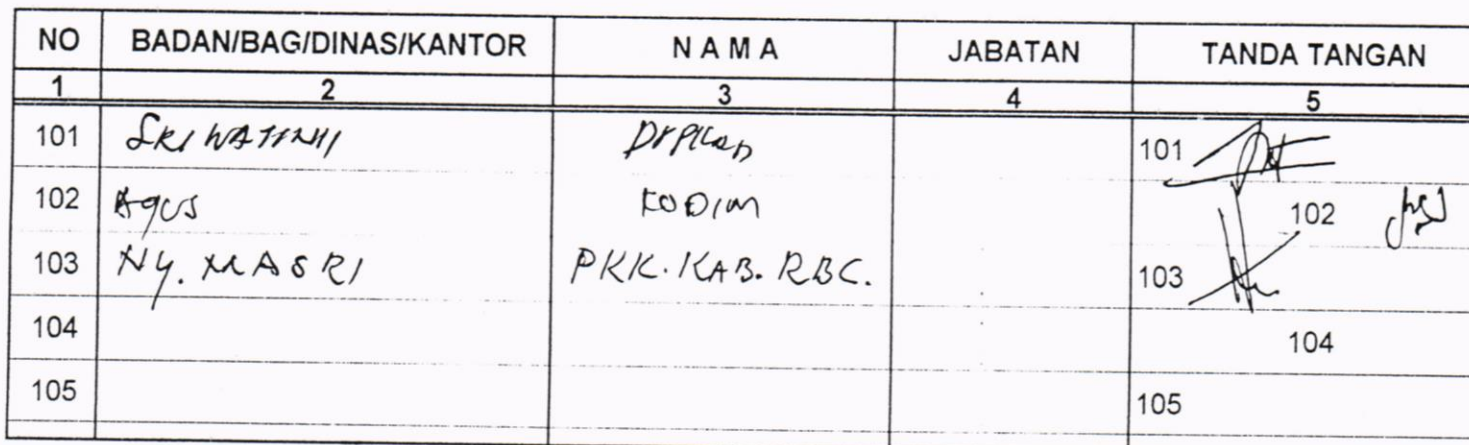 NO BADAN/BAG/DINAS/KANTOR N A M A JABATAN TANDA TANGAN
1 2 3 4 5
101 SRI 101
102 Agus KODIM 102
103 NY. MASRI PKK. KAB. RBC. 103
104 104
105 105